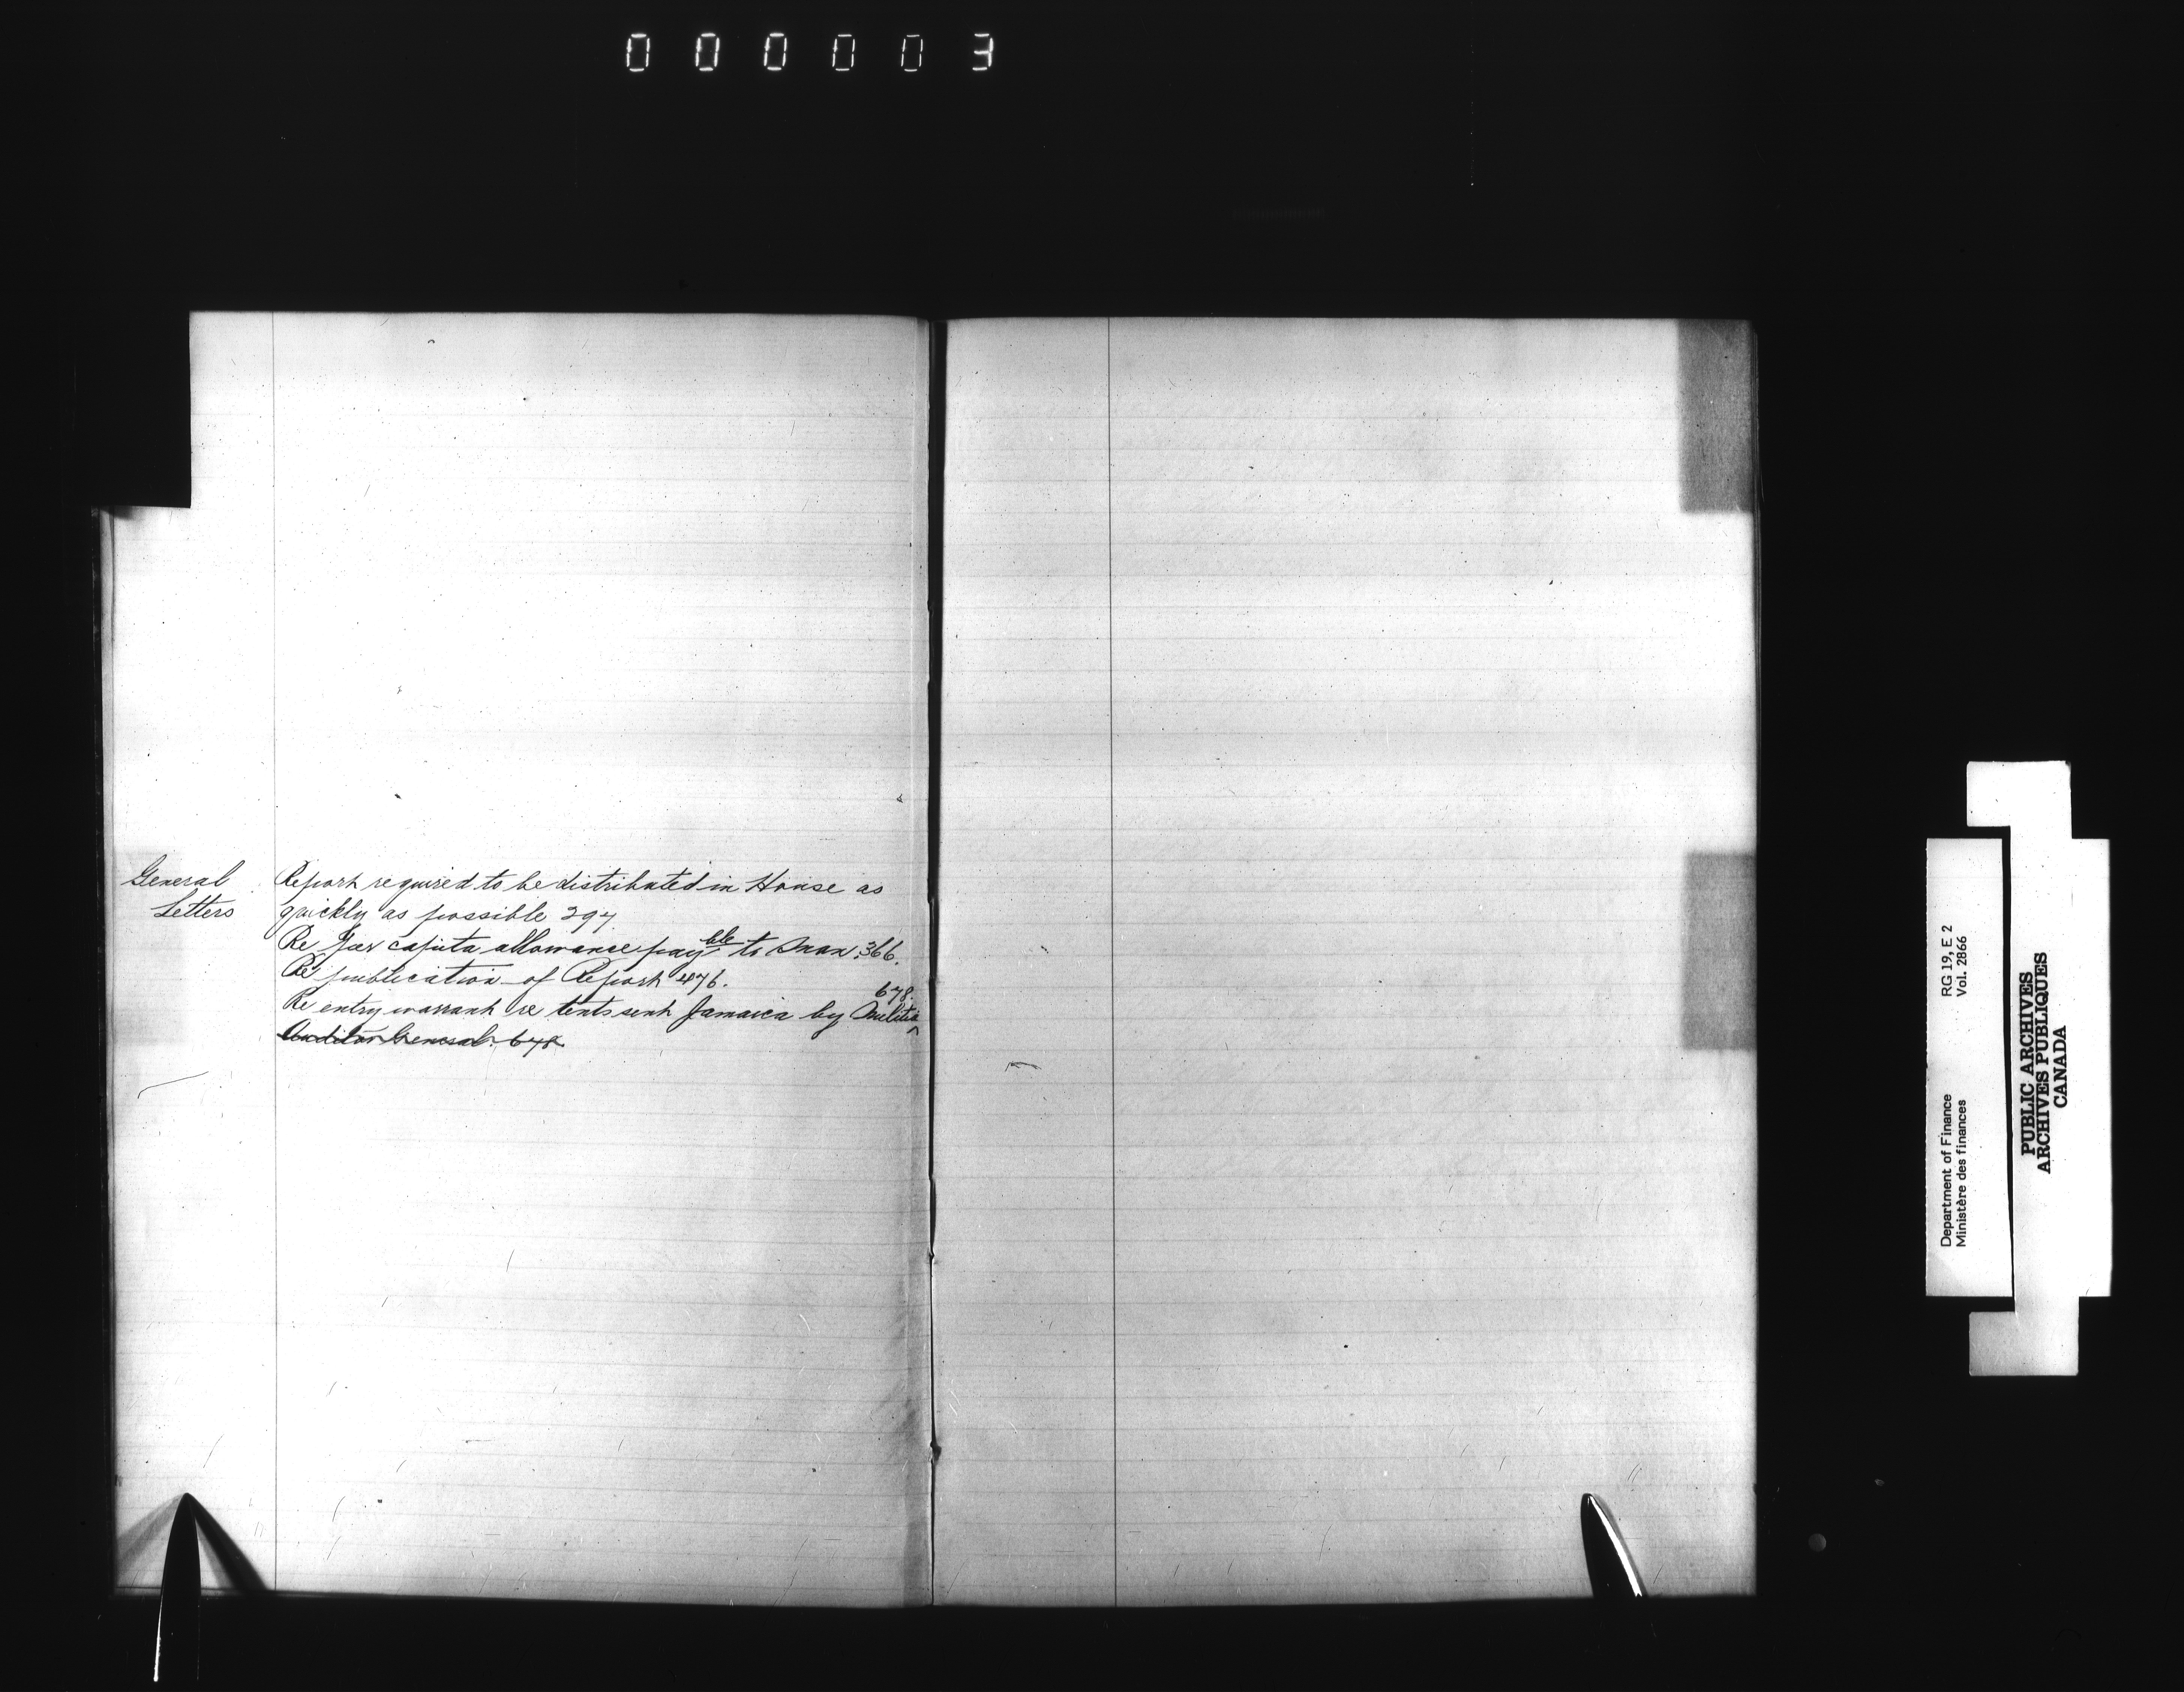 000003
General Letters
Report required to be distributed in House as
quickly as possible 297.
Re Per capita allowance pay^ble to Man. 366.
Re publication of Report 476.
Re entry warrant re tents sent Jamaica by Militia ^ 678.
Auditor General. 678.
Department of Finance RG 19, E 2
Ministère des finances Vol. 2866
PUBLIC ARCHIVES
ARCHIVES PUBLIQUES
CANADA